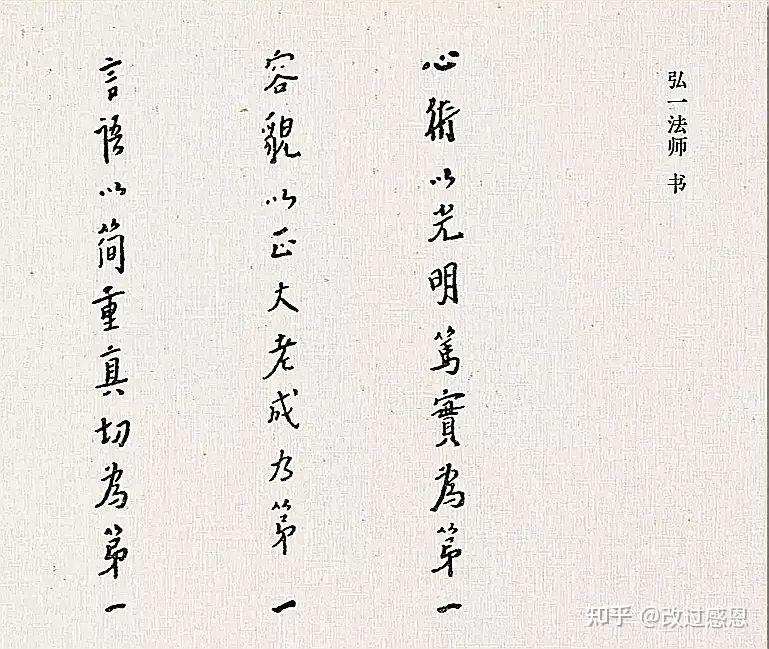 弘一法师 书
心術以光明篤實為第一
容貌以正大老成为第一
言語以简重真切為第一
知乎 @改过感恩